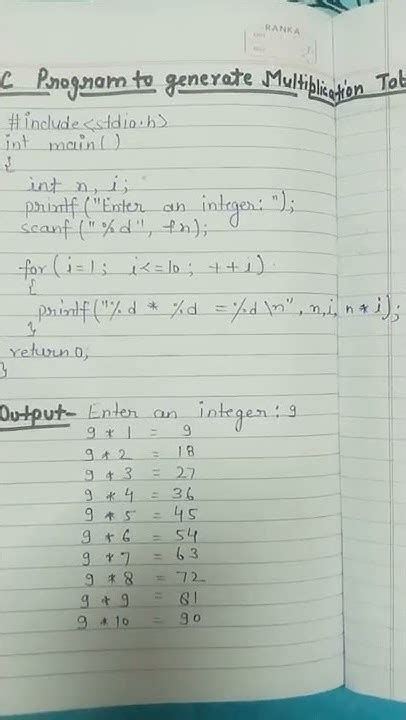 RANKA
C Program to generate Multiplication Tab
#include<stdio.h>
int main()
{
int n, i;
printf("Enter an integer: ");
scanf("%d", &n);
for(i=1; i<=10; ++i)
{
printf("%d * %d = %d \n", n,i, n * i);
}
return 0;
}
Output- Enter an integer: 9
9 * 1 = 9
9 * 2 = 18
9 * 3 = 27
9 * 4 = 36
9 * 5 = 45
9 * 6 = 54
9 * 7 = 63
9 * 8 = 72
9 * 9 = 81
9 * 10 = 90